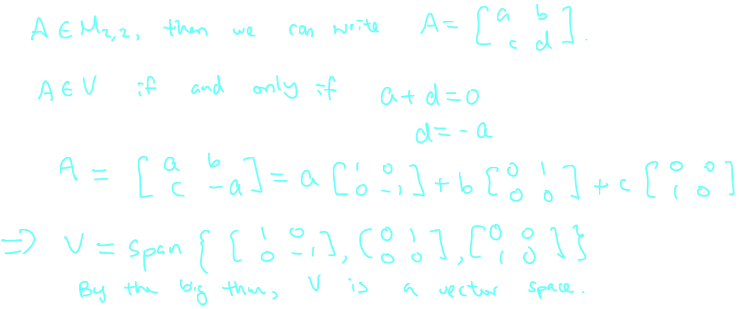 A ∈ M₂,₂, then we can write A = [a b; c d].
A ∈ V if and only if a + d = 0
d = -a
A = [a b; c -a] = a [1 0; 0 -1] + b [0 1; 0 0] + c [0 0; 1 0]
⇒ V = span { [1 0; 0 -1], [0 1; 0 0], [0 0; 1 0] }
By the big thm, V is a vector space.